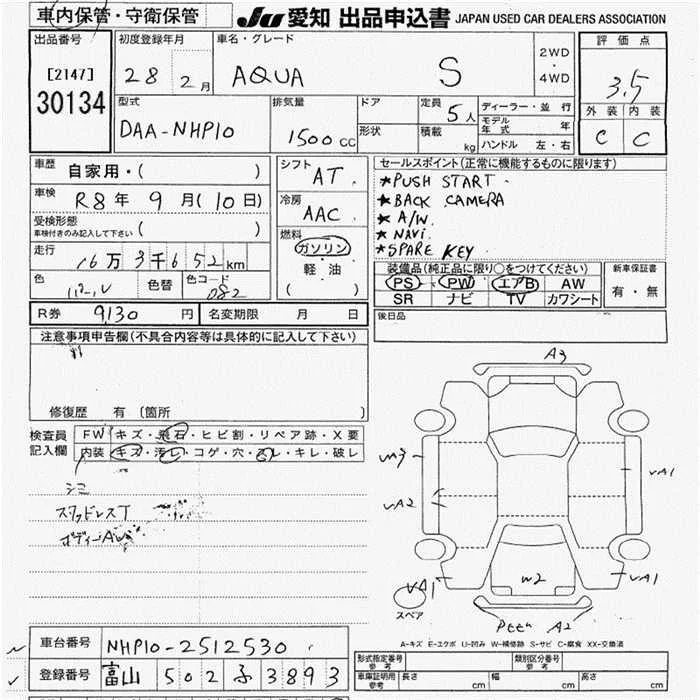 車内保管・守衛保管
JU 愛知 出品申込書 JAPAN USED CAR DEALERS ASSOCIATION
出品番号
[2147]
30134
初度登録年月
28 2月
車名・グレード
AQUA S
2WD
・
4WD
評価点
3.5
外装 内装
C C
型式
DAA-NHP10
排気量
1500 CC
ドア
形状
定員
5人
積載
kg
ディーラー・並 行
モデル年式 年
ハンドル 左・右
車歴 自家用・( )
車検 R8年 9月(10日)
受検形態
車検付きのみ記入して下さい ( )
走行 16万3千652km
色
色替
色コード
082
シフト
AT
冷房
AAC
燃料
ガソリン
軽・油
( )
セールスポイント(正常に機能するものに限ります)
*PUSH START
*BACK CAMERA
*A/W.
*NAVI.
*SPARE KEY
装備品(純正品に限り○をつけてください)
PS PW エアB AW
SR ナビ TV カワシート
新車保証書
有・無
R券 9130円 名変期限 月 日
後日品
注意事項申告欄(不具合内容等は具体的に記入して下さい)
修復歴 有 〔箇所 〕
検査員記入欄
FW キズ・飛石・ヒビ割・リペア跡・X要
内装 キズ・汚レ・コゲ・穴・スレ・キレ・破レ
シミ
スタッドレスT
ボディーAW
A3
A1
A2
A1
A1
W2
A2
スペア
A-キズ E-エクボ U-凹み W-補修跡 S-サビ C-腐食 XX-交換済
車台番号 NHP10-2512530
登録番号 富山 502 3893
形式指定番号
参考
類別区分番号
参考
車庫証明用
参考
長さ cm 幅 cm 高さ cm